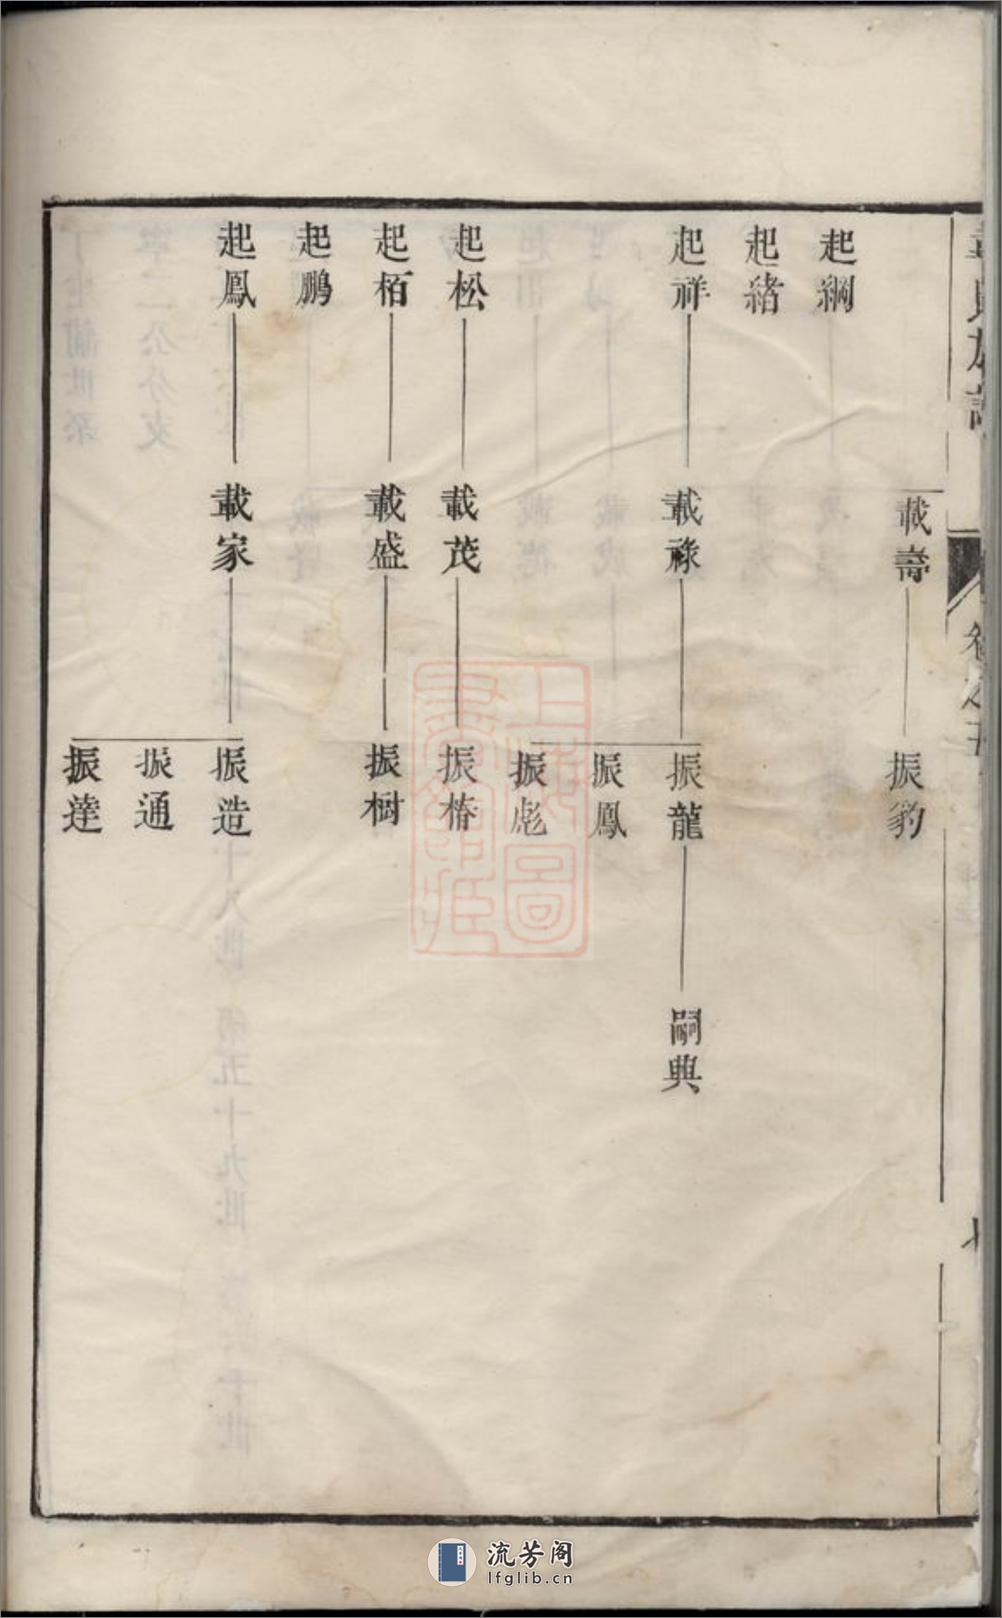 載壽
振豹
起綱
起緒
起祥
載祿
振龍
嗣典
振鳳
振彪
起松
載茂
振椿
起栢
載盛
振樹
起鵬
起鳳
載家
振造
振通
振達
上海圖書館藏
流芳阁
lfglib.cn